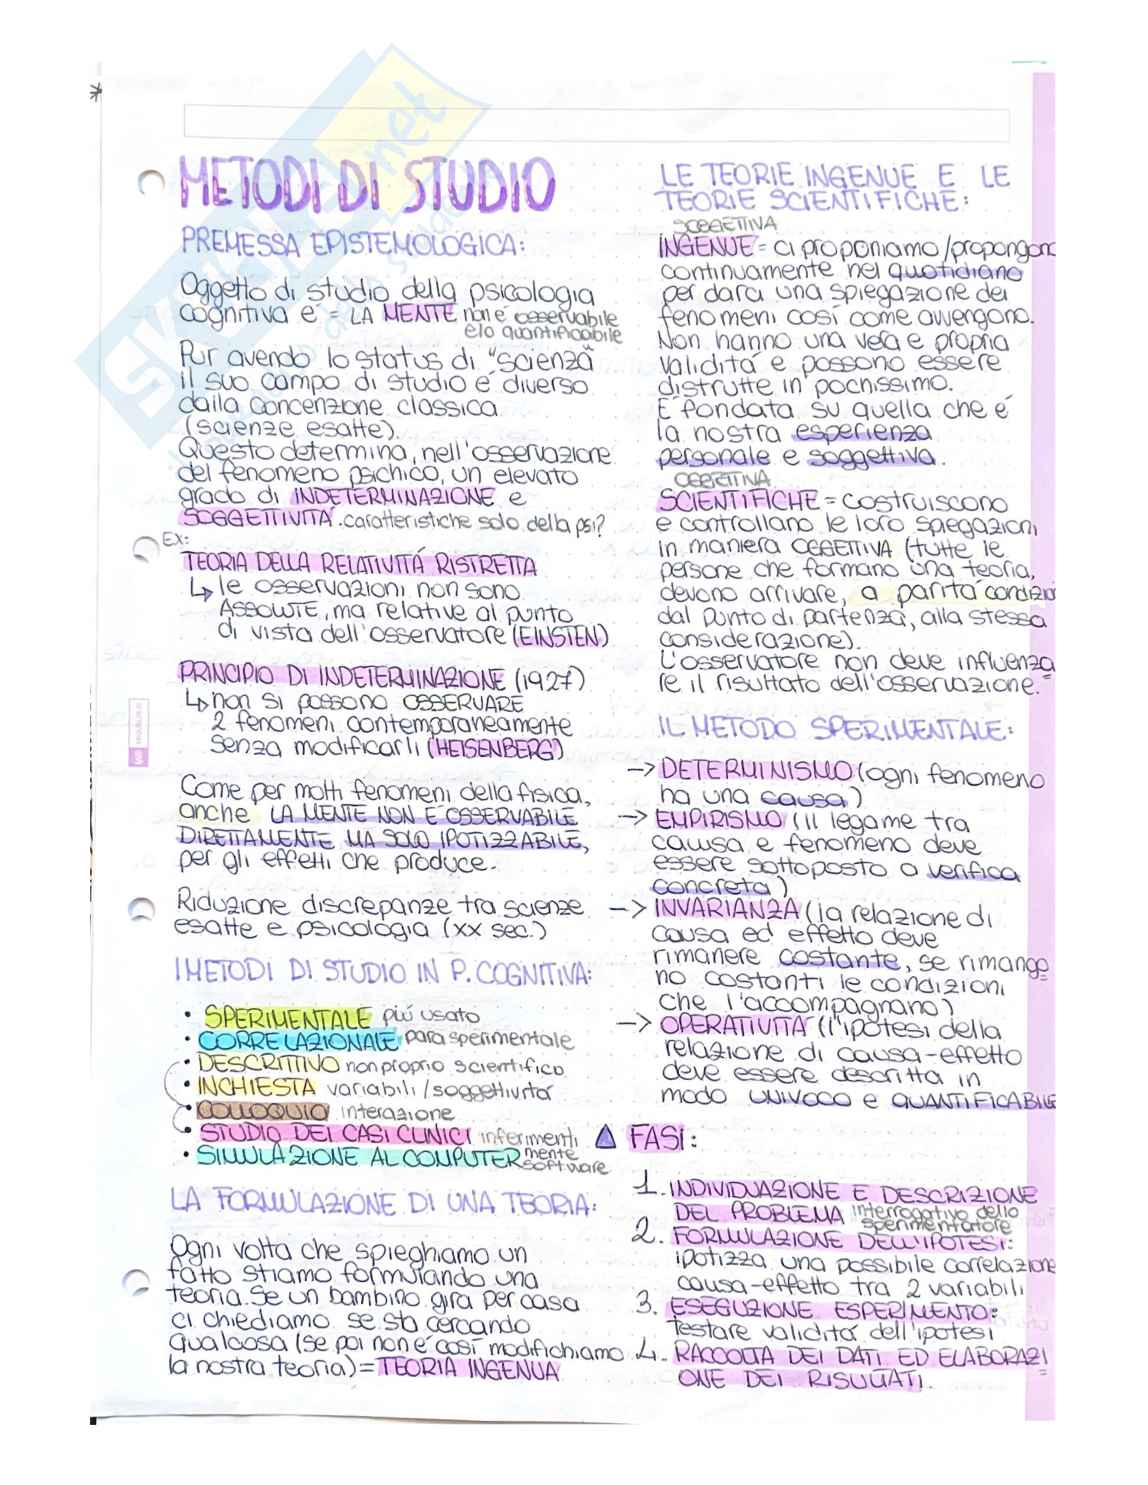 METODI DI STUDIO
PREMESSA EPISTEMOLOGICA:
Oggetto di studio della psicologia
cognitiva é = LA MENTE non é osservabile
e/o quantificabile
Pur avendo lo status di "scienza"
il suo campo di studio é diverso
dalla concenzone classica
(scienze esatte).
Questo determina, nell'osservazione
del fenomeno psichico, un elevato
grado di INDETERMINAZIONE e
SOGGETTIVITÁ. caratteristiche solo della psi?
Ex:
TEORIA DELLA RELATIVITÁ RISTRETTA
↳ le osservazioni non sono
ASSOLUTE, ma relative al punto
di vista dell'osservatore (EINSTEN)
PRINCIPIO DI INDETERMINAZIONE (1927)
↳ non si possono OSSERVARE
2 fenomeni contemporaneamente
senza modificarli (HEISENBERG)
Come per molti fenomeni della fisica,
anche LA MENTE NON É OSSERVABILE
DIRETTAMENTE, MA SOLO IPOTIZZABILE,
per gli effetti che produce.
Riduzione discrepanze tra scienze
esatte e psicologia (XX sec.)
I METODI DI STUDIO IN P. COGNITIVA:
• SPERIMENTALE piú usato
• CORRELAZIONALE para sperimentale
• DESCRITTIVO non proprio scientifico
• INCHIESTA variabili/soggettivitá
• COLLOQUIO interazione
• STUDIO DEI CASI CLINICI inferimenti
• SIMULAZIONE AL COMPUTER mente
software
LA FORMULAZIONE DI UNA TEORIA:
Ogni volta che spieghiamo un
fatto stiamo formulando una
teoria. Se un bambino gira per casa
ci chiediamo se sta cercando
qualcosa (se poi non é cosí modifichiamo
la nostra teoria) = TEORIA INGENUA
LE TEORIE INGENUE E LE
TEORIE SCIENTIFICHE:
SOGGETTIVA
INGENUE = ci proponiamo/propongono
continuamente nel quotidiano
per darci una spiegazione dei
fenomeni cosí come avvengono.
Non hanno una vera e propria
validitá e possono essere
distrutte in pochissimo.
É fondata su quella che é
la nostra esperienza
personale e soggettiva.
OGGETTIVA
SCIENTIFICHE = costruiscono
e controllano le loro spiegazioni
in maniera OGGETTIVA (tutte le
persone che formano una teoria,
devono arrivare, a paritá condizioni
dal punto di partenza, alla stessa
considerazione).
L'osservatore non deve influenza
re il risultato dell'osservazione.
IL METODO SPERIMENTALE:
→ DETERMINISMO (ogni fenomeno
ha una causa)
→ EMPIRISMO (il legame tra
causa e fenomeno deve
essere sottoposto a verifica
concreta)
→ INVARIANZA (la relazione di
causa ed effetto deve
rimanere costante, se rimango
no costanti le condizioni
che l'accompagnano)
→ OPERATIVITÁ (l'ipotesi della
relazione di causa-effetto
deve essere descritta in
modo UNIVOCO e QUANTIFICABILE
FASI:
1. INDIVIDUAZIONE E DESCRIZIONE
DEL PROBLEMA interrogativo dello
sperimentatore
2. FORMULAZIONE DELL'IPOTESI:
ipotizza una possibile correlazione
causa-effetto tra 2 variabili
3. ESEGUZIONE ESPERIMENTO:
testare validitá dell'ipotesi
4. RACCOLTA DEI DATI ED ELABORAZI
ONE DEI RISULTATI.